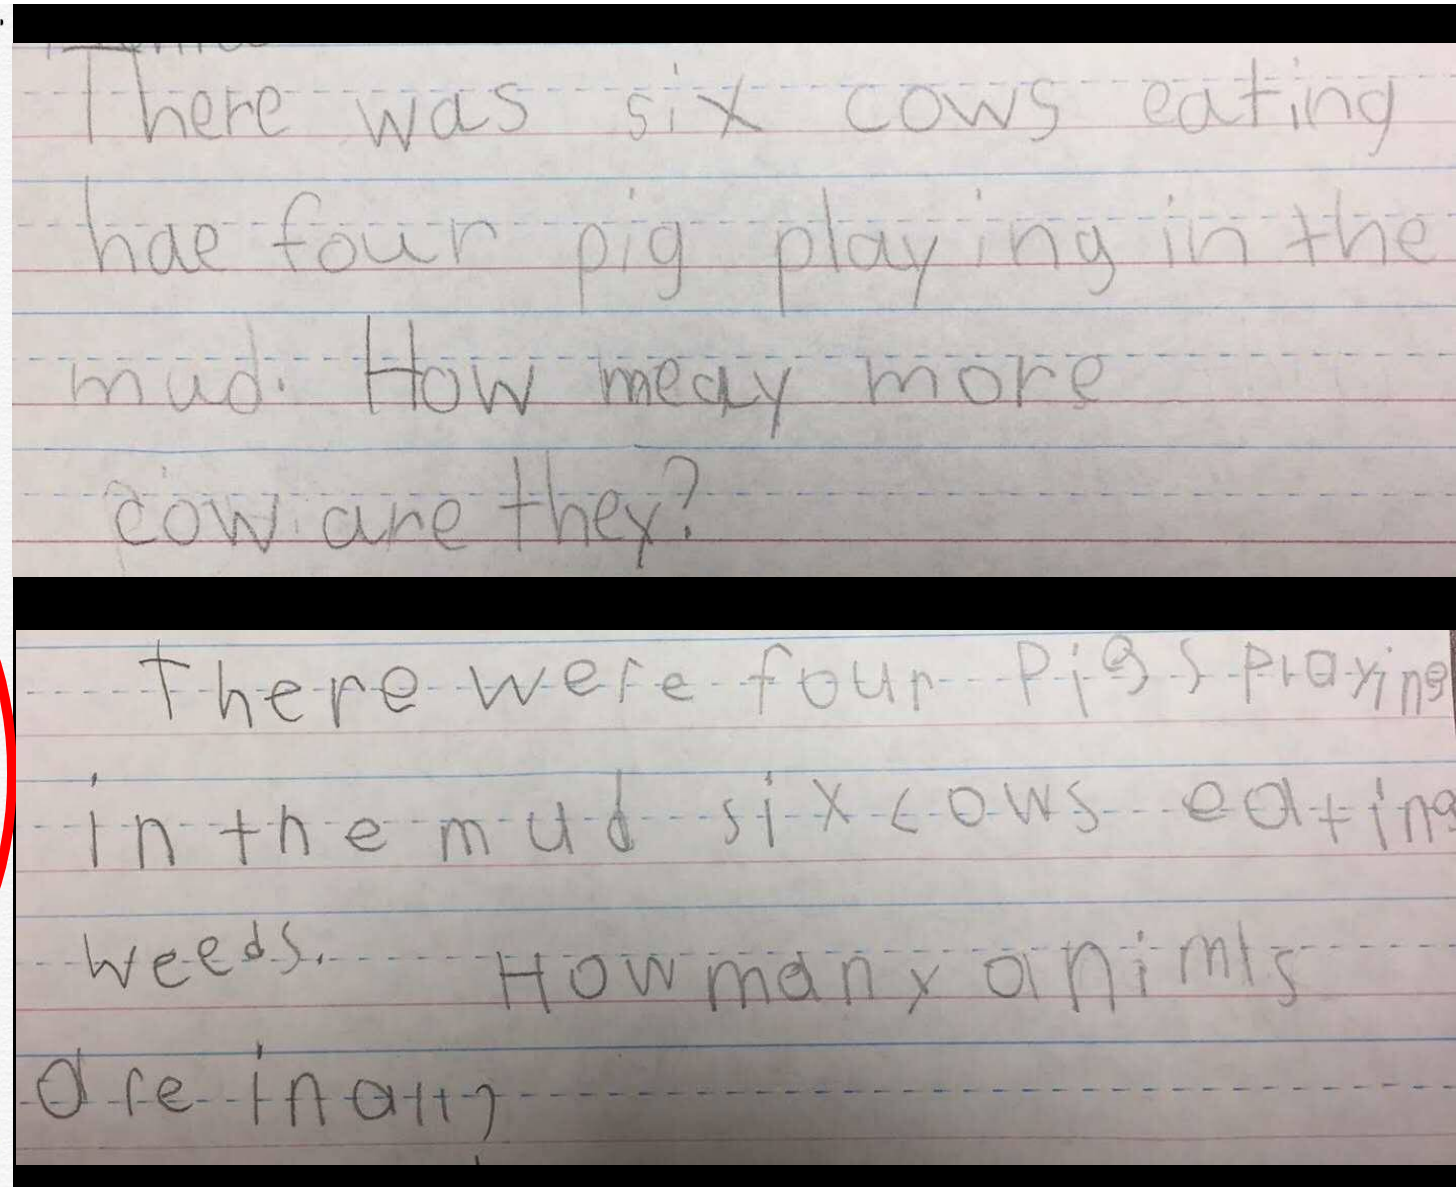 There was six cows eating
hae four pig playing in the
mud. How meay more
cow are they?
There were four Pigs Playing
in the mud six cows eating
weeds. How many animls
are in all?